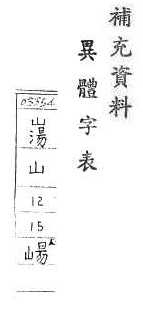 補充資料
異體字表
山
12
15
崵